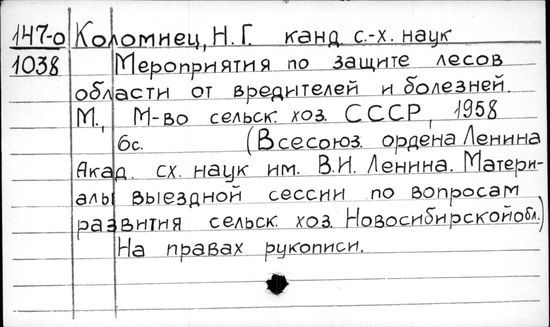 147-о Коломиец, Н. Г. канд с.-х. наук
1038 Мероприятия по защите лесов
области от вредителей и болезней.
М., М-во сельск. хоз. СССР, 1958
6с. (Всесоюз. ордена Ленина
Акад. сх. наук им. В.И. Ленина. Матери-
алы выездной сессии по вопросам
развития сельск. хоз. Новосибирской обл.)
На правах рукописи.